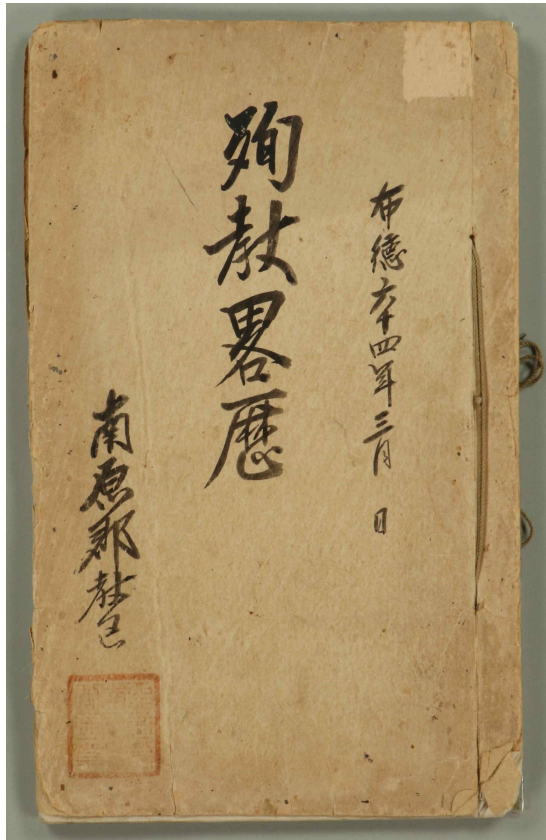 布德六十四年三月 日
殉教畧歷
南原郡教區